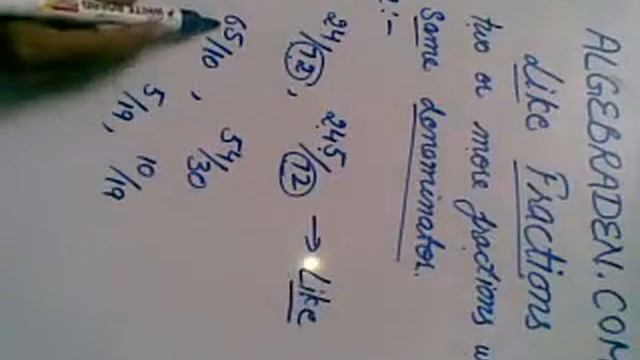 ALGEBRADEN.COM
Like Fractions
two or more fractions w
Same denominator.
:-
24/12, 245/12 → Like
65/10, 54/30
5/19, 10/19